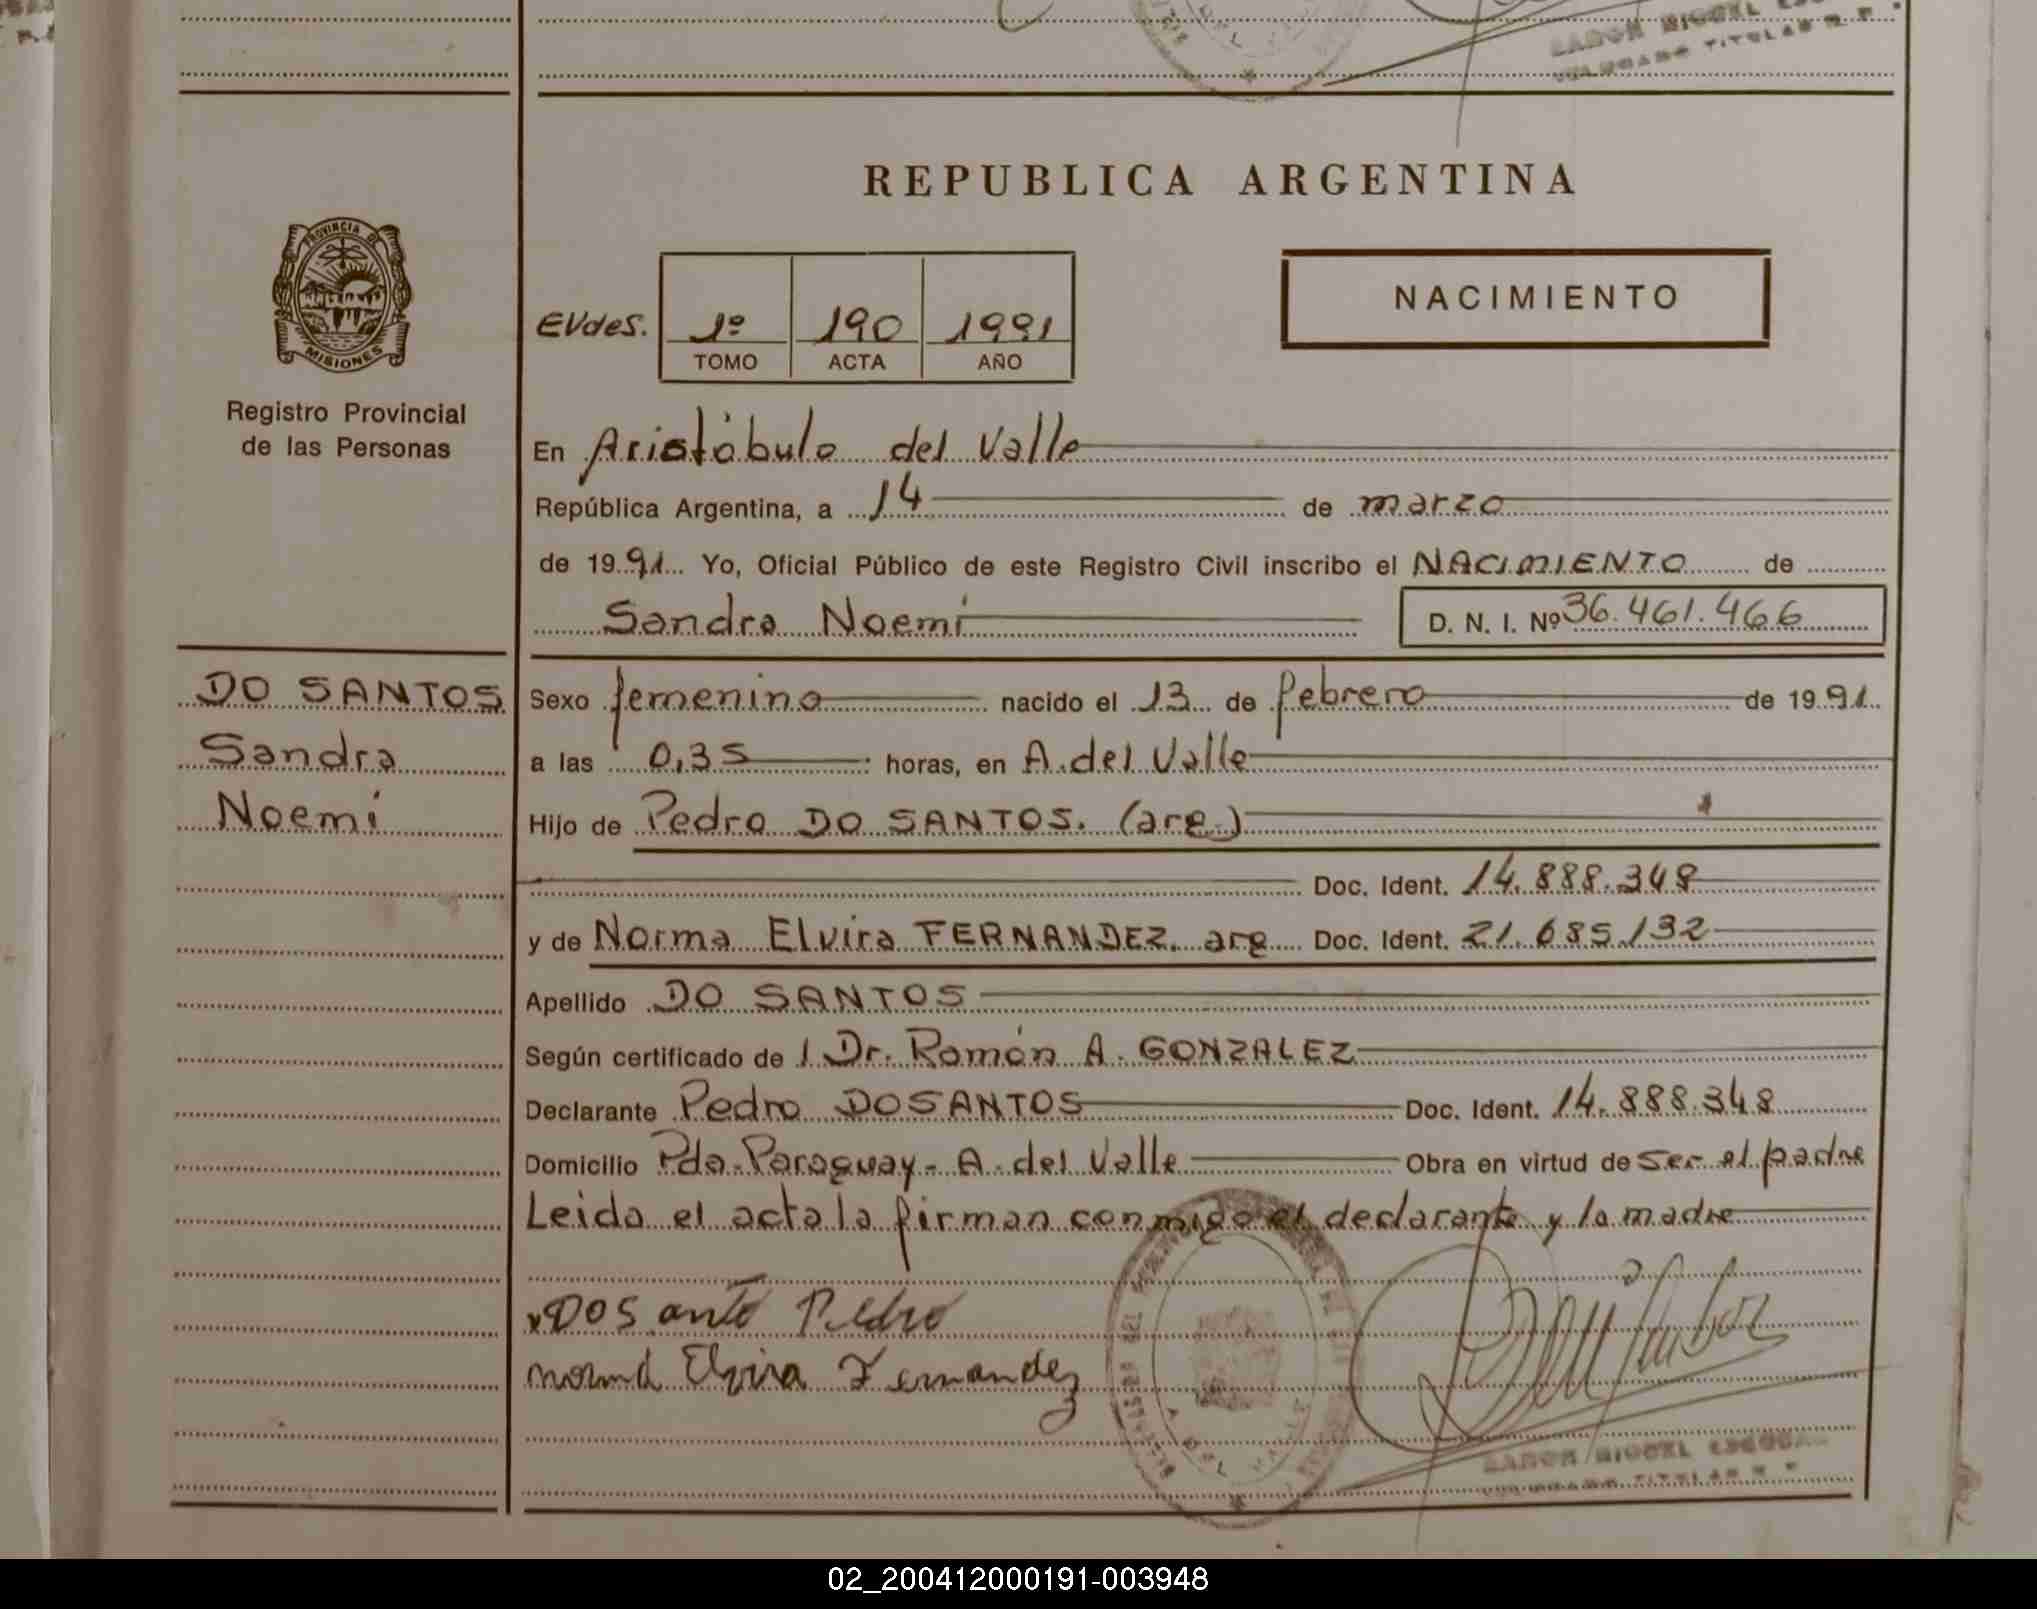 REPUBLICA ARGENTINA
PROVINCIA DE
MISIONES
Registro Provincial
de las Personas
EVdes. 1º 190 1991
TOMO ACTA AÑO
NACIMIENTO
En Aristóbulo del Valle
República Argentina, a 14 de marzo
de 1991 Yo, Oficial Público de este Registro Civil inscribo el NACIMIENTO de
Sandra Noemí
D. N. I. Nº 36.461.466
DO SANTOS
Sandra
Noemí
Sexo femenino nacido el 13 de febrero de 1991
a las 0,35 horas, en A. del Valle
Hijo de Pedro DO SANTOS. (arg.)
Doc. Ident. 14.888.348
y de Norma Elvira FERNANDEZ. arg Doc. Ident. 21.685.132
Apellido DO SANTOS
Según certificado de 1 Dr. Ramón A. GONZALEZ
Declarante Pedro DOSANTOS Doc. Ident. 14.888.348
Domicilio Pdo. Paraguay - A. del Valle Obra en virtud de ser el padre
Leida el acta la firman conmigo el declarante y la madre
x DOS anto Pedro
norma Elvira Fernandez
A. DEL VALLE
02_200412000191-003948